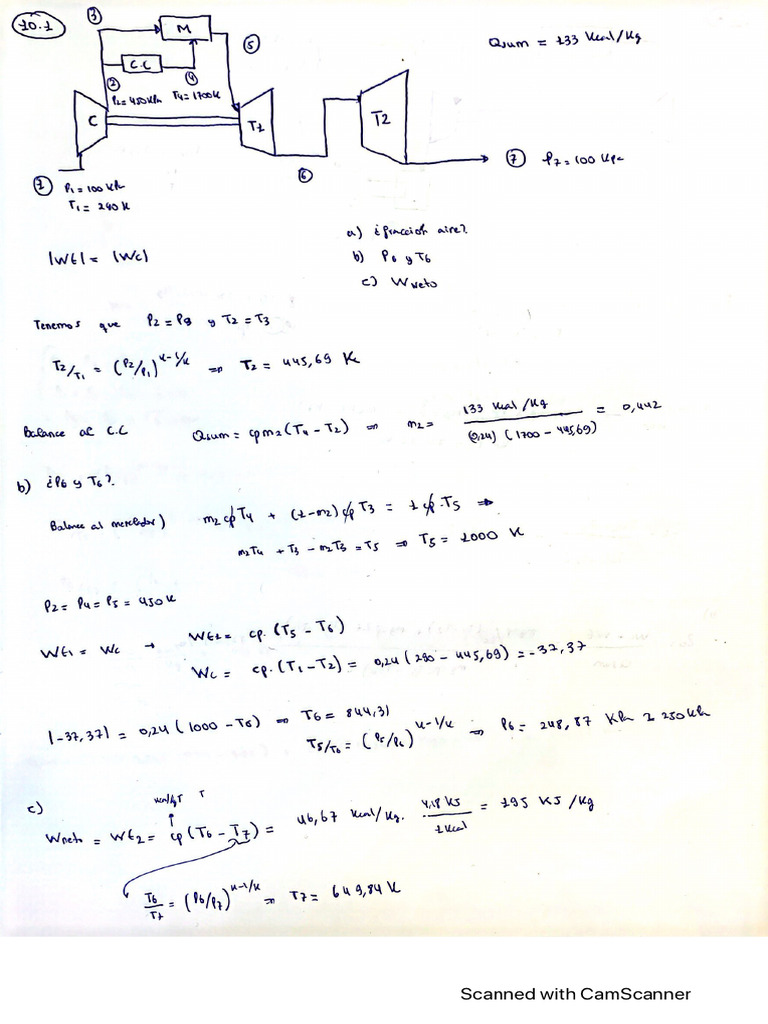 10.1
③
M
Qsum = 133 Kcal/Kg
C.C
⑤
②
④
P2=450kPa T4=1700K
C
T1
T2
① P1=100 kPa
T1= 290 K
⑥
⑦ P7=100 kPa
a) ¿fracción aire?
|Wt|= |Wc|
b) P6 y T6
c) Wneto
Tenemos que P2=P3 y T2=T3
T2/T1 = (P2/P1)^k-1/k ⇒ T2= 445,69 K
Balance al C.C Qsum= cpm2(T4-T2) ⇒ m2= 133 Kcal/Kg / (0,24) (1700-445,69) = 0,442
b) ¿P6 y T6?
Balance al mezclador) m2cpT4 + (1-m2)cpT3 = 1cp.T5 ⇒
m2T4 +T3-m2T3=T5 ⇒ T5= 1000 K
P2= P4= P5= 450K
WE1= Wc → WE2= cp.(T5-T6)
Wc= cp.(T1-T2)= 0,24(290-445,69)=-37,37
|-37,37|= 0,24(1000-T6) ⇒ T6= 844,31
T5/T6= (P5/P6)^k-1/k ⇒ P6= 248,87 KPa ≃ 250kPa
c)
Wneto= WE2= cp(T6-T7)= 46,67 Kcal/Kg. 4,18 KJ/1Kcal = 195 KJ/Kg
T6/T7=(P6/P7)^k-1/k ⇒ T7= 649,84K
Scanned with CamScanner